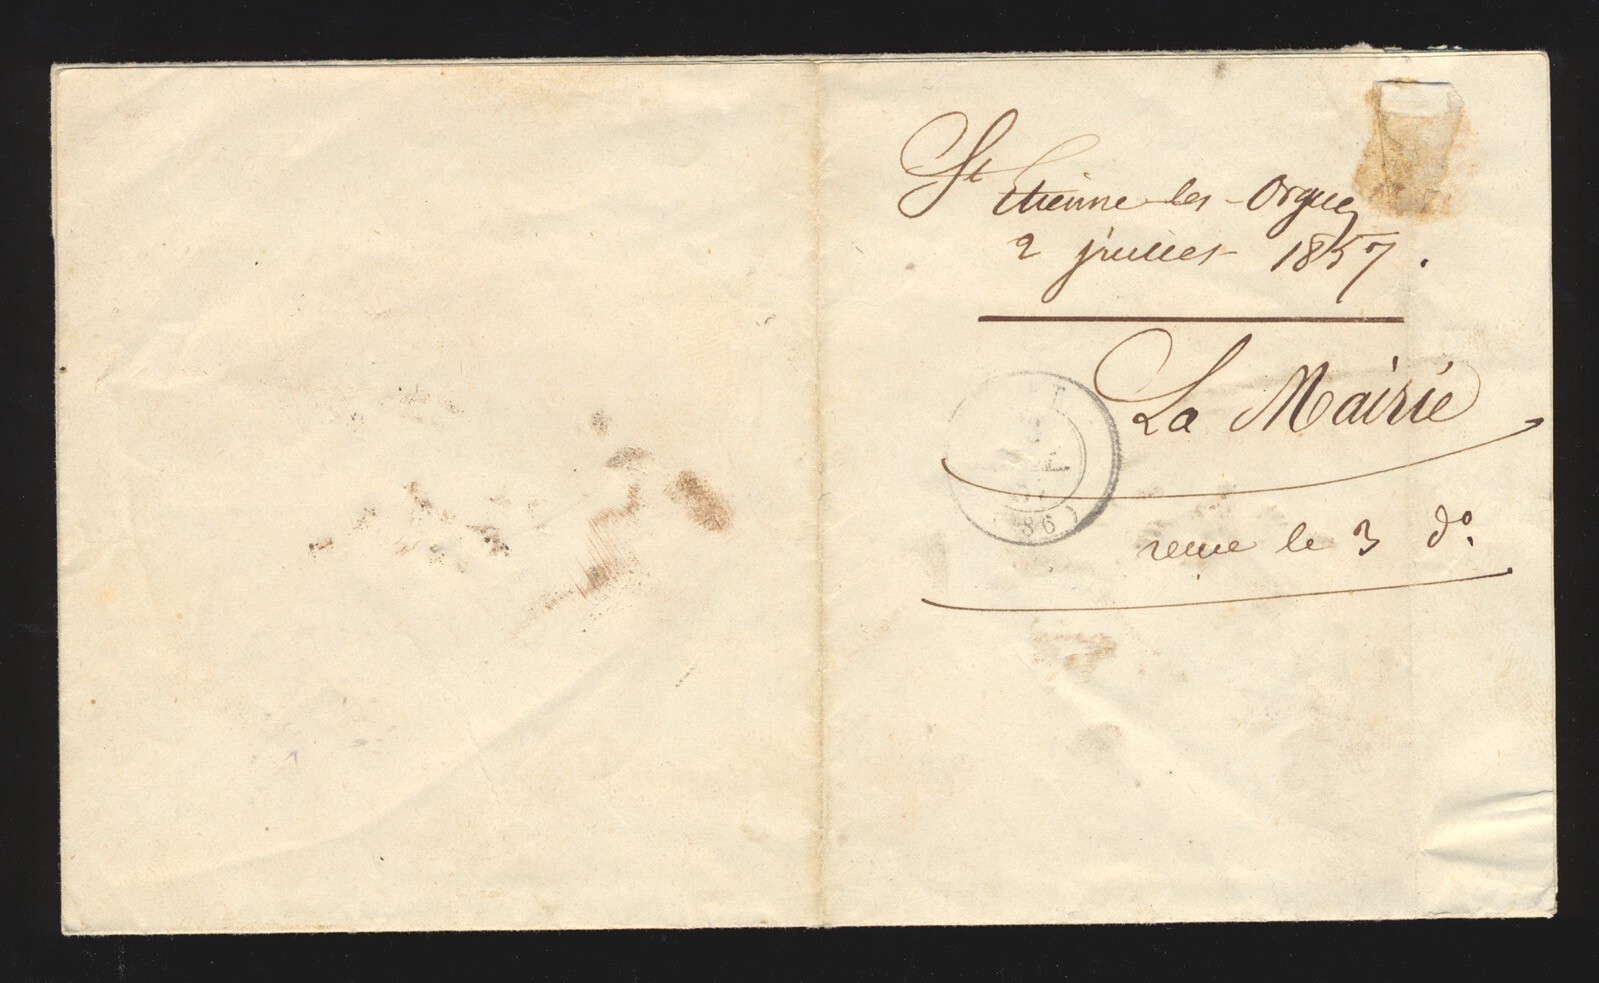 St Etienne-les-Orgues
2 juillet 1857.
La Mairie
T
(86)
reçue le 3 do.